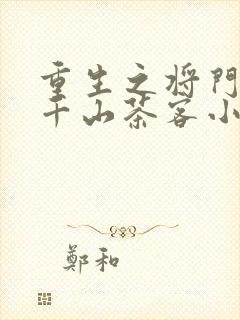 重生之将門
千山茶客小
鄭和